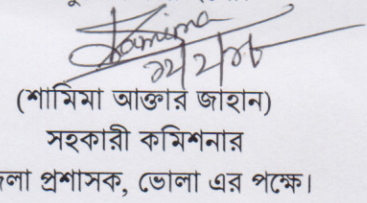 (শামিমা আক্তার জাহান)
সহকারী কমিশনার
লা প্রশাসক, ভোলা এর পক্ষে।